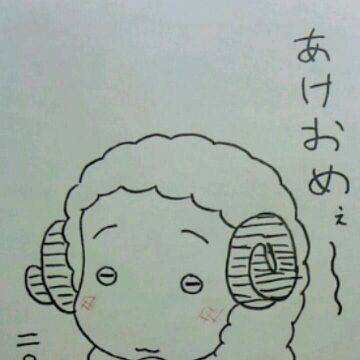 あけおめぇ〜